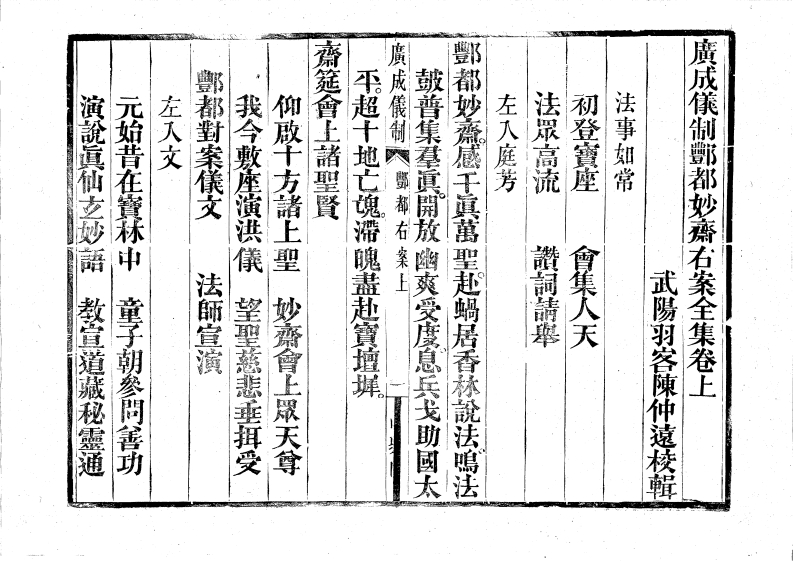 廣成儀制酆都妙齋右案全集卷上
武陽羽客陳仲遠校輯
法事如常
初登寶座　會集人天
法眾高流　讚詞請舉
左入庭芳
酆都妙齋。感千眞萬聖。赴蝸居香林說法。鳴法
鼓普集羣眞。開放幽爽受度。息兵戈助國太
廣成儀制　酆都右案上　一
平。超十地亡魂。滯魄盡赴寶壇墀。
齋筵會上諸聖賢
仰啟十方諸上聖　妙齋會上眾天尊
我今敷座演洪儀　望聖慈悲垂拑受
酆都對案儀文　法師宣演
左入文
元始昔在寶林中　童子朝參問善功
演說眞仙玄妙語　教宣道藏秘靈通